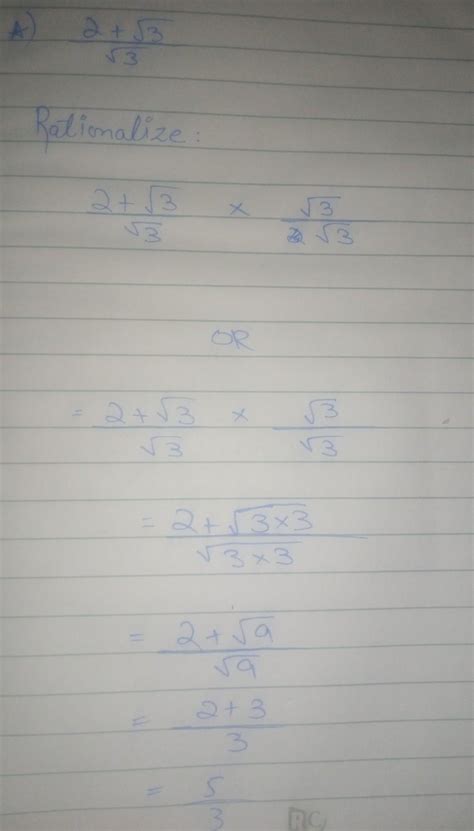 A) 2 + √3 / √3
Rationalize:
2 + √3 / √3 × √3 / √3
OR
= 2 + √3 / √3 × √3 / √3
= 2 + √3×3 / √3×3
= 2 + √9 / √9
= 2 + 3 / 3
= 5 / 3
RC